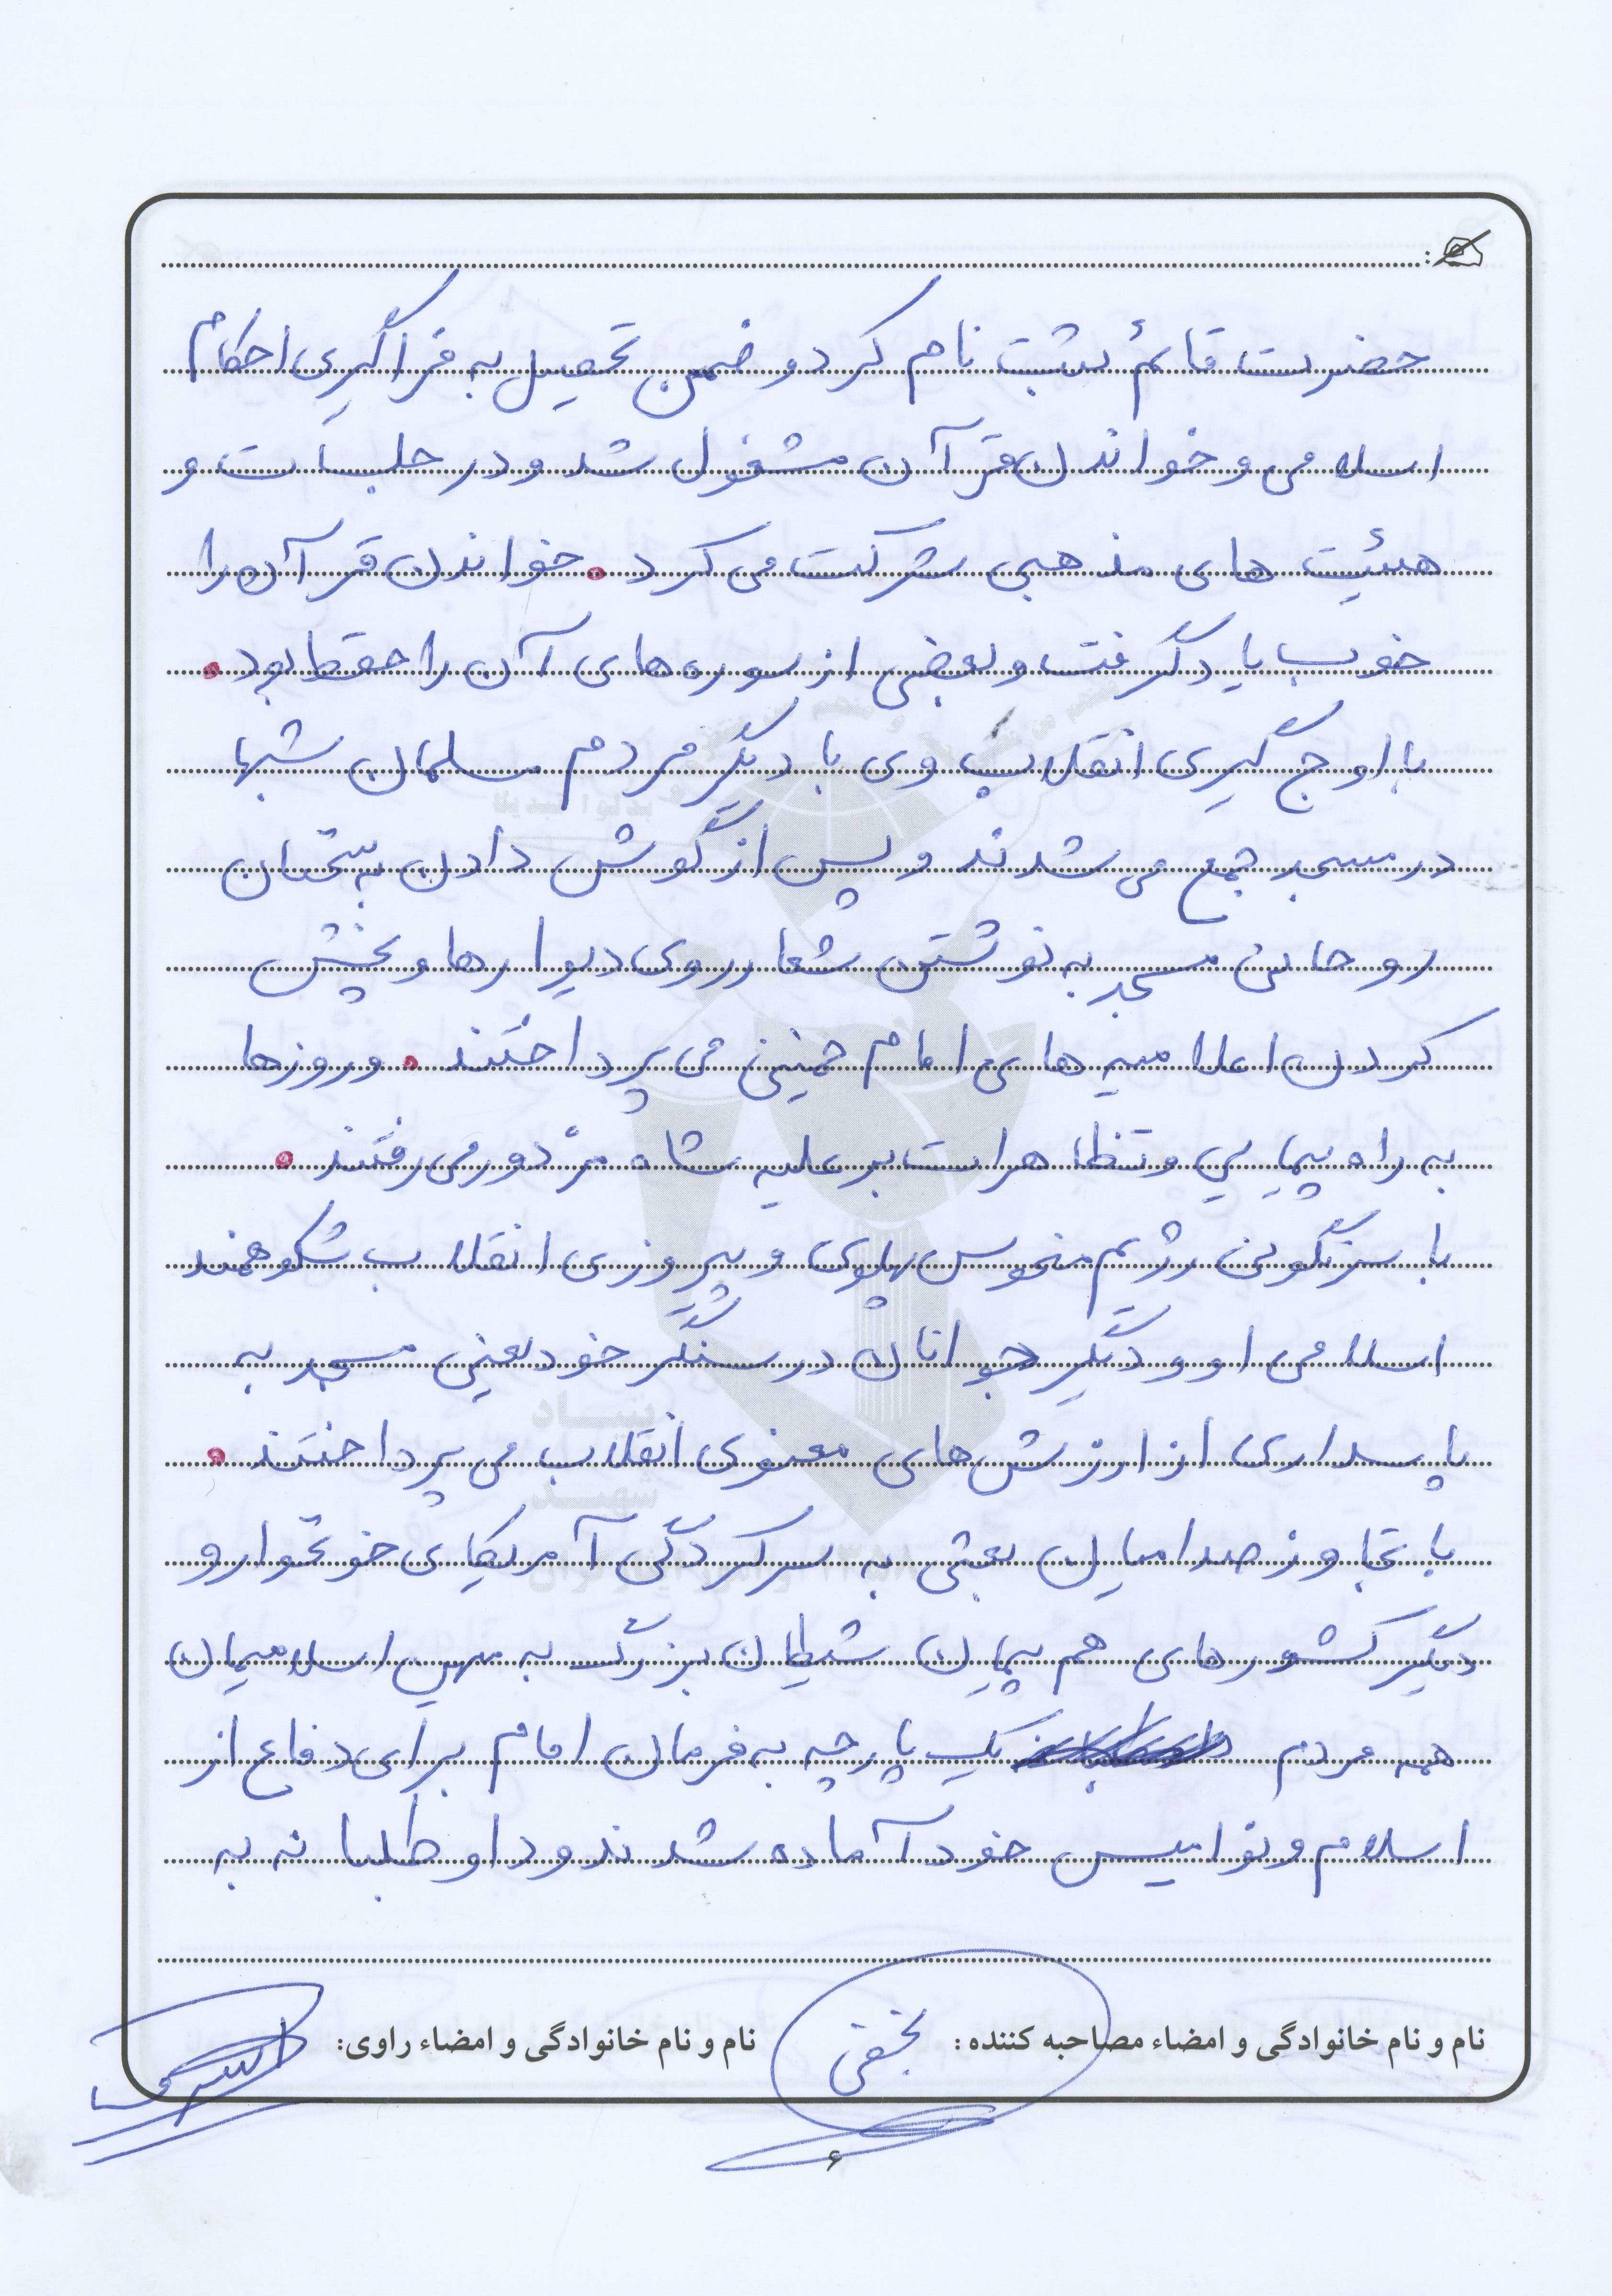 حضرت قائم ثبت نام کرد و ضمن تحصیل به فراگیری احکام
اسلامی و خواندن قرآن مشغول شد و در جلسات و
هیئت های مذهبی شرکت می کرد . خواندن قرآن را
خوب یاد گرفت و بعضی از سوره های آن را حفظ بود .
با اوج گیری انقلاب وی با دیگر مردم مسلمان شبها
در مسجد جمع می شدند و پس از گوش دادن به سخنان
روحانی مسجد به نوشتن شعار روی دیوارها و پخش
کردن اعلامیه های امام خمینی می پرداختند . و روزها
به راه پیمایی و تظاهرات بر علیه شاه مزدور می رفتند .
با سرنگونی رژیم منحوس پهلوی و پیروزی انقلاب شکوهمند
اسلامی او و دیگر جوانان در سنگر خود یعنی مسجد به
پاسداری از ارزش های معنوی انقلاب می پرداختند .
با تجاوز صدامیان بعثی به سرکردگی آمریکای خونخوار و
دیگر کشورهای هم پیمان شیطان بزرگ به میهن اسلامیمان
همه مردم یک پارچه به فرمان امام برای دفاع از
اسلام و نوامیس خود آماده شدند و داوطلبانه به
نام و نام خانوادگی و امضاء مصاحبه کننده: نجفی
نام و نام خانوادگی و امضاء راوی:
۶